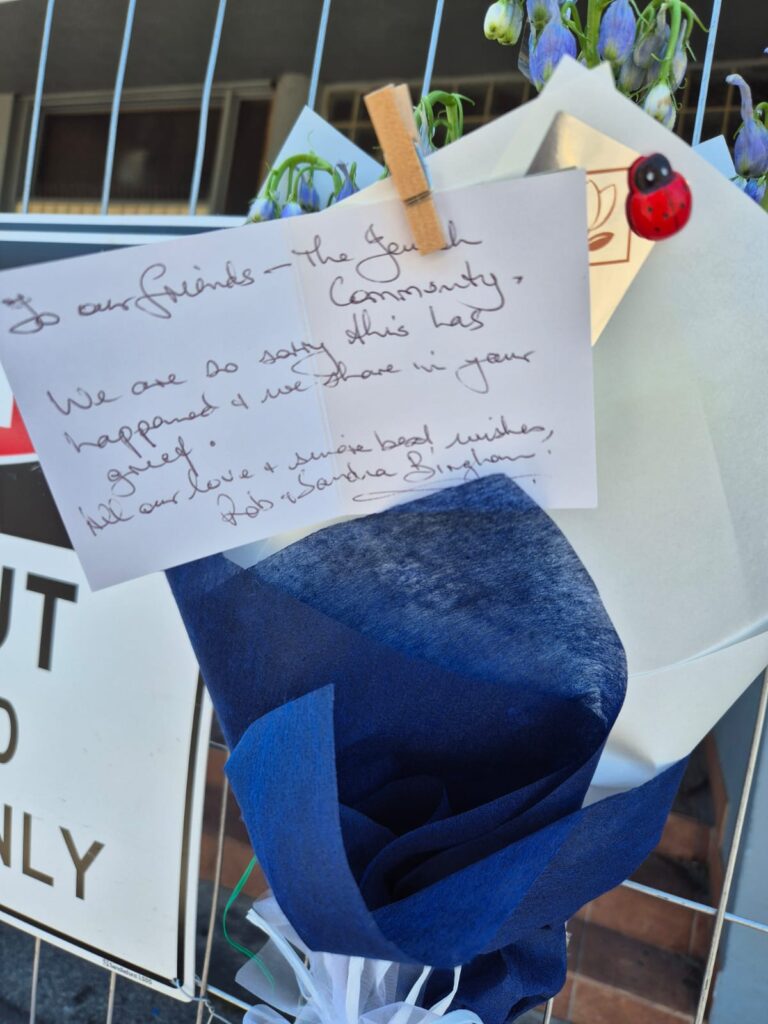 To our friends – The Jewish
Community.
We are so sorry this has
happened & we share in your
grief.
All our love & sincere best wishes,
Rob & Sandra Bingham.
UT
NLY